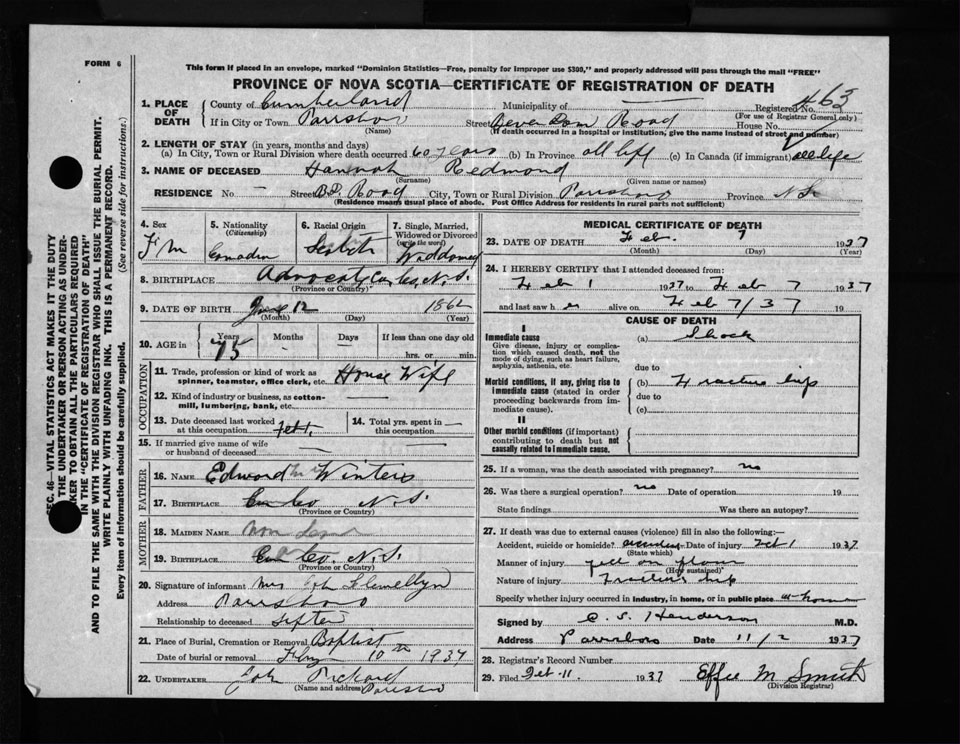 FORM 6
This form if placed in an envelope, marked "Dominion Statistics—Free, penalty for improper use $300," and properly addressed will pass through the mail "FREE"
PROVINCE OF NOVA SCOTIA—CERTIFICATE OF REGISTRATION OF DEATH
1. PLACE OF DEATH County of Cumberland Municipality of — Registered No. 463
(For use of Registrar General only)
If in City or Town Parrsboro Street Road House No.
(Name) (If death occurred in a hospital or institution, give the name instead of street and number)
2. LENGTH OF STAY (in years, months and days)
(a) In City, Town or Rural Division where death occurred 60 years (b) In Province all life (c) In Canada (if immigrant) all life
3. NAME OF DECEASED Hannah Redmond
(Surname) (Given name or names)
RESIDENCE No. — Street Road City, Town or Rural Division Parrsboro Province N.S.
(Residence means usual place of abode. Post Office Address for residents in rural parts not sufficient)
4. Sex 5. Nationality (Citizenship) 6. Racial Origin 7. Single, Married, Widowed or Divorced (write the word)
Canadian Scotch
8. BIRTHPLACE N.S.
(Province or Country)
9. DATE OF BIRTH 12 1862
(Month) (Day) (Year)
10. AGE in Years Months Days If less than one day old
75 — — hrs. or min.
OCCUPATION
11. Trade, profession or kind of work as spinner, teamster, office clerk, etc. House Wife
12. Kind of industry or business, as cotton-mill, lumbering, bank, etc. —
13. Date deceased last worked at this occupation 14. Total yrs. spent in this occupation —
15. If married give name of wife or husband of deceased —
FATHER
16. NAME Edward Winters
17. BIRTHPLACE Co N.S.
(Province or Country)
MOTHER
18. MAIDEN NAME
19. BIRTHPLACE Co. N.S.
(Province or Country)
20. Signature of informant Mrs Llewellyn
Address Parrsboro
Relationship to deceased
21. Place of Burial, Cremation or Removal Baptist
Date of burial or removal 10th 1937
22. UNDERTAKER Pickard
(Name and address) Parrsboro
MEDICAL CERTIFICATE OF DEATH
23. DATE OF DEATH Feb. 7 1937
(Month) (Day)
24. I HEREBY CERTIFY that I attended deceased from:
Feb 1 1937 to Feb 7 1937
and last saw her alive on Feb 7/37 19
CAUSE OF DEATH
I
Immediate cause
Give disease, injury or complication which caused death, not the mode of dying, such as heart failure, asphyxia, asthenia, etc.
(a) Shock
due to
Morbid conditions, if any, giving rise to immediate cause (stated in order proceeding backwards from immediate cause).
(b) Fracture hip
due to
(c)
II
Other morbid conditions (if important) contributing to death but not causally related to immediate cause.
25. If a woman, was the death associated with pregnancy? no
26. Was there a surgical operation? no Date of operation 19
State findings Was there an autopsy?
27. If death was due to external causes (violence) fill in also the following:—
Accident, suicide or homicide? Date of injury Feb 1 1937
(State which)
Manner of injury fell on floor
(How sustained)
Nature of injury Fracture hip
Specify whether injury occurred in industry, in home, or in public place home
Signed by C. S. Henderson M.D.
Address Parrsboro Date 11/2 1937
28. Registrar's Record Number
29. Filed Feb. 11 1937 Effie M Smith
(Division Registrar)
SEC. 46—VITAL STATISTICS ACT MAKES IT THE DUTY
THE UNDERTAKER OR PERSON ACTING AS UNDER-
TAKER TO OBTAIN ALL THE PARTICULARS REQUIRED
IN THE "CERTIFICATE OF REGISTRATION OF DEATH"
AND TO FILE THE SAME WITH THE DIVISION REGISTRAR WHO SHALL ISSUE THE BURIAL PERMIT.
WRITE PLAINLY WITH UNFADING INK. THIS IS A PERMANENT RECORD.
Every item of information should be carefully supplied. (See reverse side for instructions.)